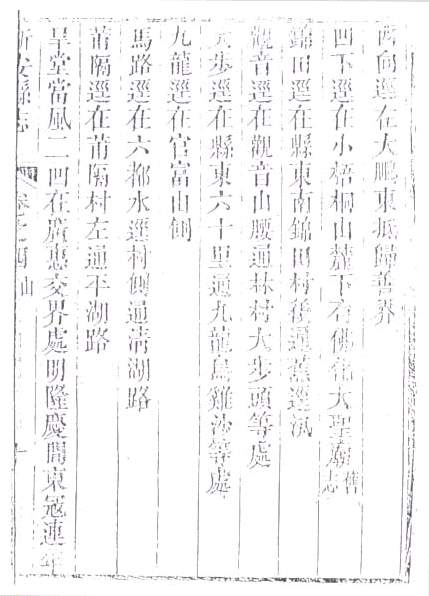 西向逕在大鵬東坻歸善界
凹下逕在小梧桐山麓下有佛祖大聖廟舊志
錦田逕在縣東南錦田村後通蕉逕汛
觀音逕在觀音山腰通林村大步頭等處
大步逕在縣東六十里通九龍烏雞沙等處
九龍逕在官富山側
馬路逕在六都水逕村側通清湖路
莆隔逕在莆隔村左通平湖路
旱堂當風二凹在廣惠交界處明隆慶間東寇連年
新安縣志 卷之四 山